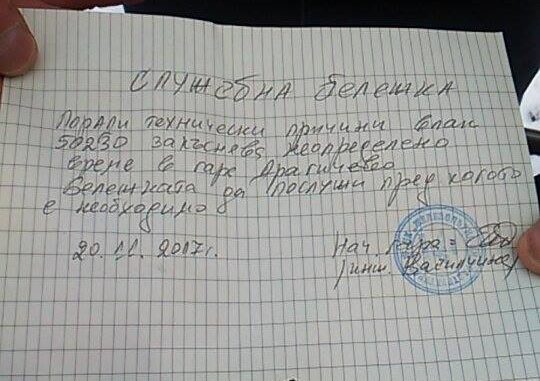 СЛУЖЕБНА БЕЛЕЖКА
Поради технически причини влак
50230 закъснява неопределено
време в гара Драгичево
Бележката да послужи пред когото
е необходимо
20.11.2017г.
Нач. гара:
/инж. Василчина/